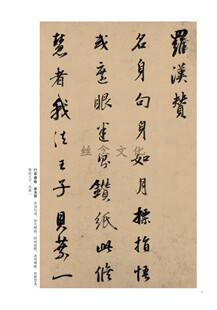 羅漢贊
名身句身如月標指悟
或遮眼迷鑽紙此修
慧者我法王子貝葉一
文化